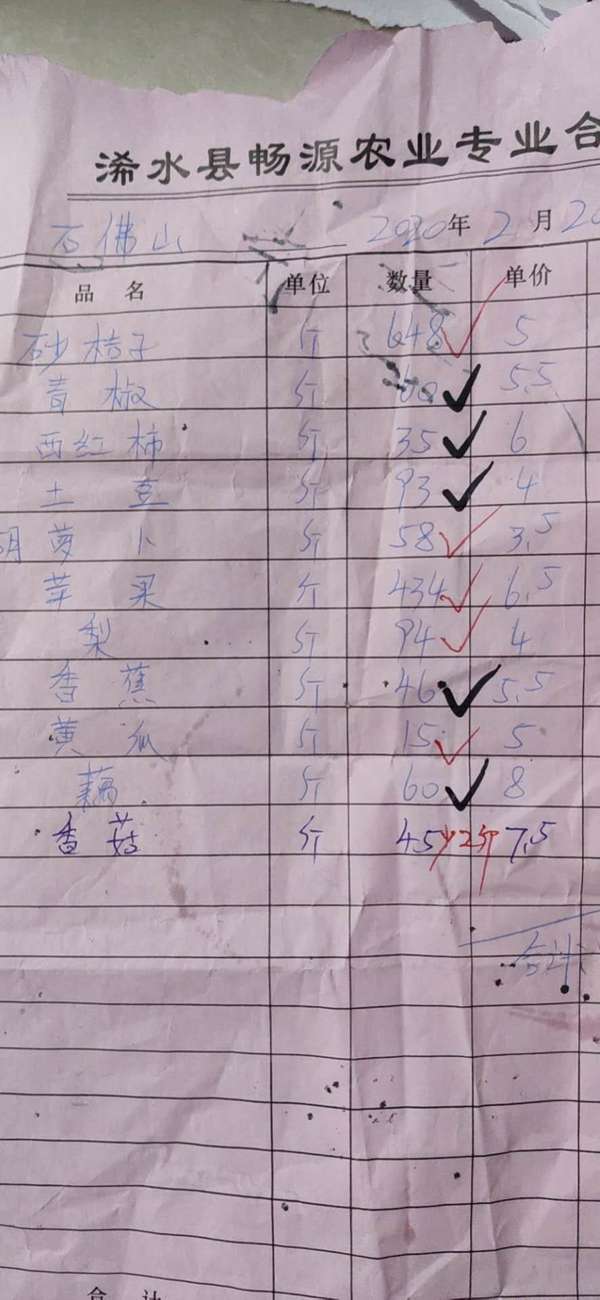 浠水县畅源农业专业合
石佛山 2020年2月20
品名 单位 数量 单价
砂桔子 斤 648 5
青椒 斤 60 5.5
西红柿 斤 35 6
土豆 斤 93 4
胡萝卜 斤 58 3.5
苹果 斤 434 6.5
梨 斤 94 4
香蕉 斤 46 5.5
黄瓜 斤 15 5
藕 斤 60 8
香菇 斤 45 少2斤 7.5
合计
合计